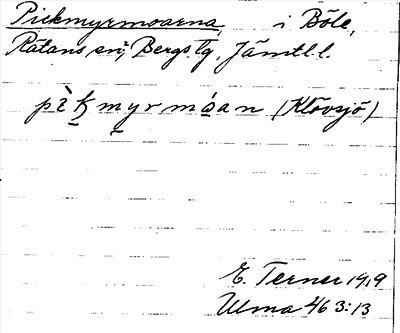 Pickmyrmoarna, i Böle,
Rätans sn, Bergs tg, Jämtl. l.
pìk̯myrmóan (Klövsjö)
E. Terner 1919
Ulma 46 3:13